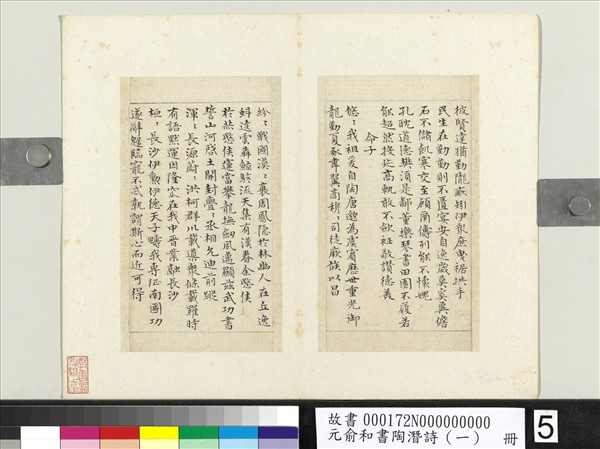 彼賢達猶勤隴畝矧伊衆庶曳裾拱手
民生在勤勤則不匱宴安自逸歲暮奚冀儋
石不儲飢寒交至顧爾儔列能不懷愧
孔耽道德樊須是鄙董樂琴書田園不履若
能超然投迹高軌敢不斂衽敬讚德美
命子
悠〻我祖爰自陶唐邈為虞賓歷世重光御
龍勤夏豕韋翼商穆〻司徒厥族以昌
紛〻戰國漠〻衰周鳳隱於林幽人在丘逸
虯遶雲奔鯨駭流天集有漢眷余愍侯
於赫愍侯運當攀龍撫劒風邁顯茲武功書
誓山河啓土開封亹〻丞相允迪前蹤
渾〻長源蔚〻洪柯群川載導衆條載羅時
有語默運因隆窊在我中晉業融長沙
桓〻長沙伊勳伊德天子疇我專征南國功
遂辭歸臨寵不忒孰謂斯心而近可得
故書 000172N000000000
元俞和書陶潛詩(一) 冊
5